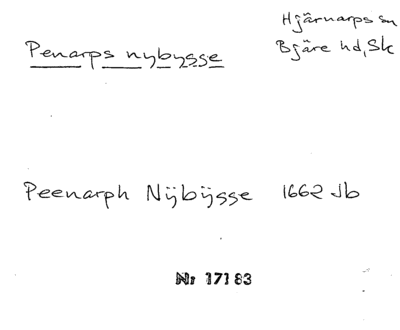 Hjärnarps sn
Penarps nybysse Bjäre hd, Sk
Peenarph Nÿbÿsse 1662 Jb
Nr 17183